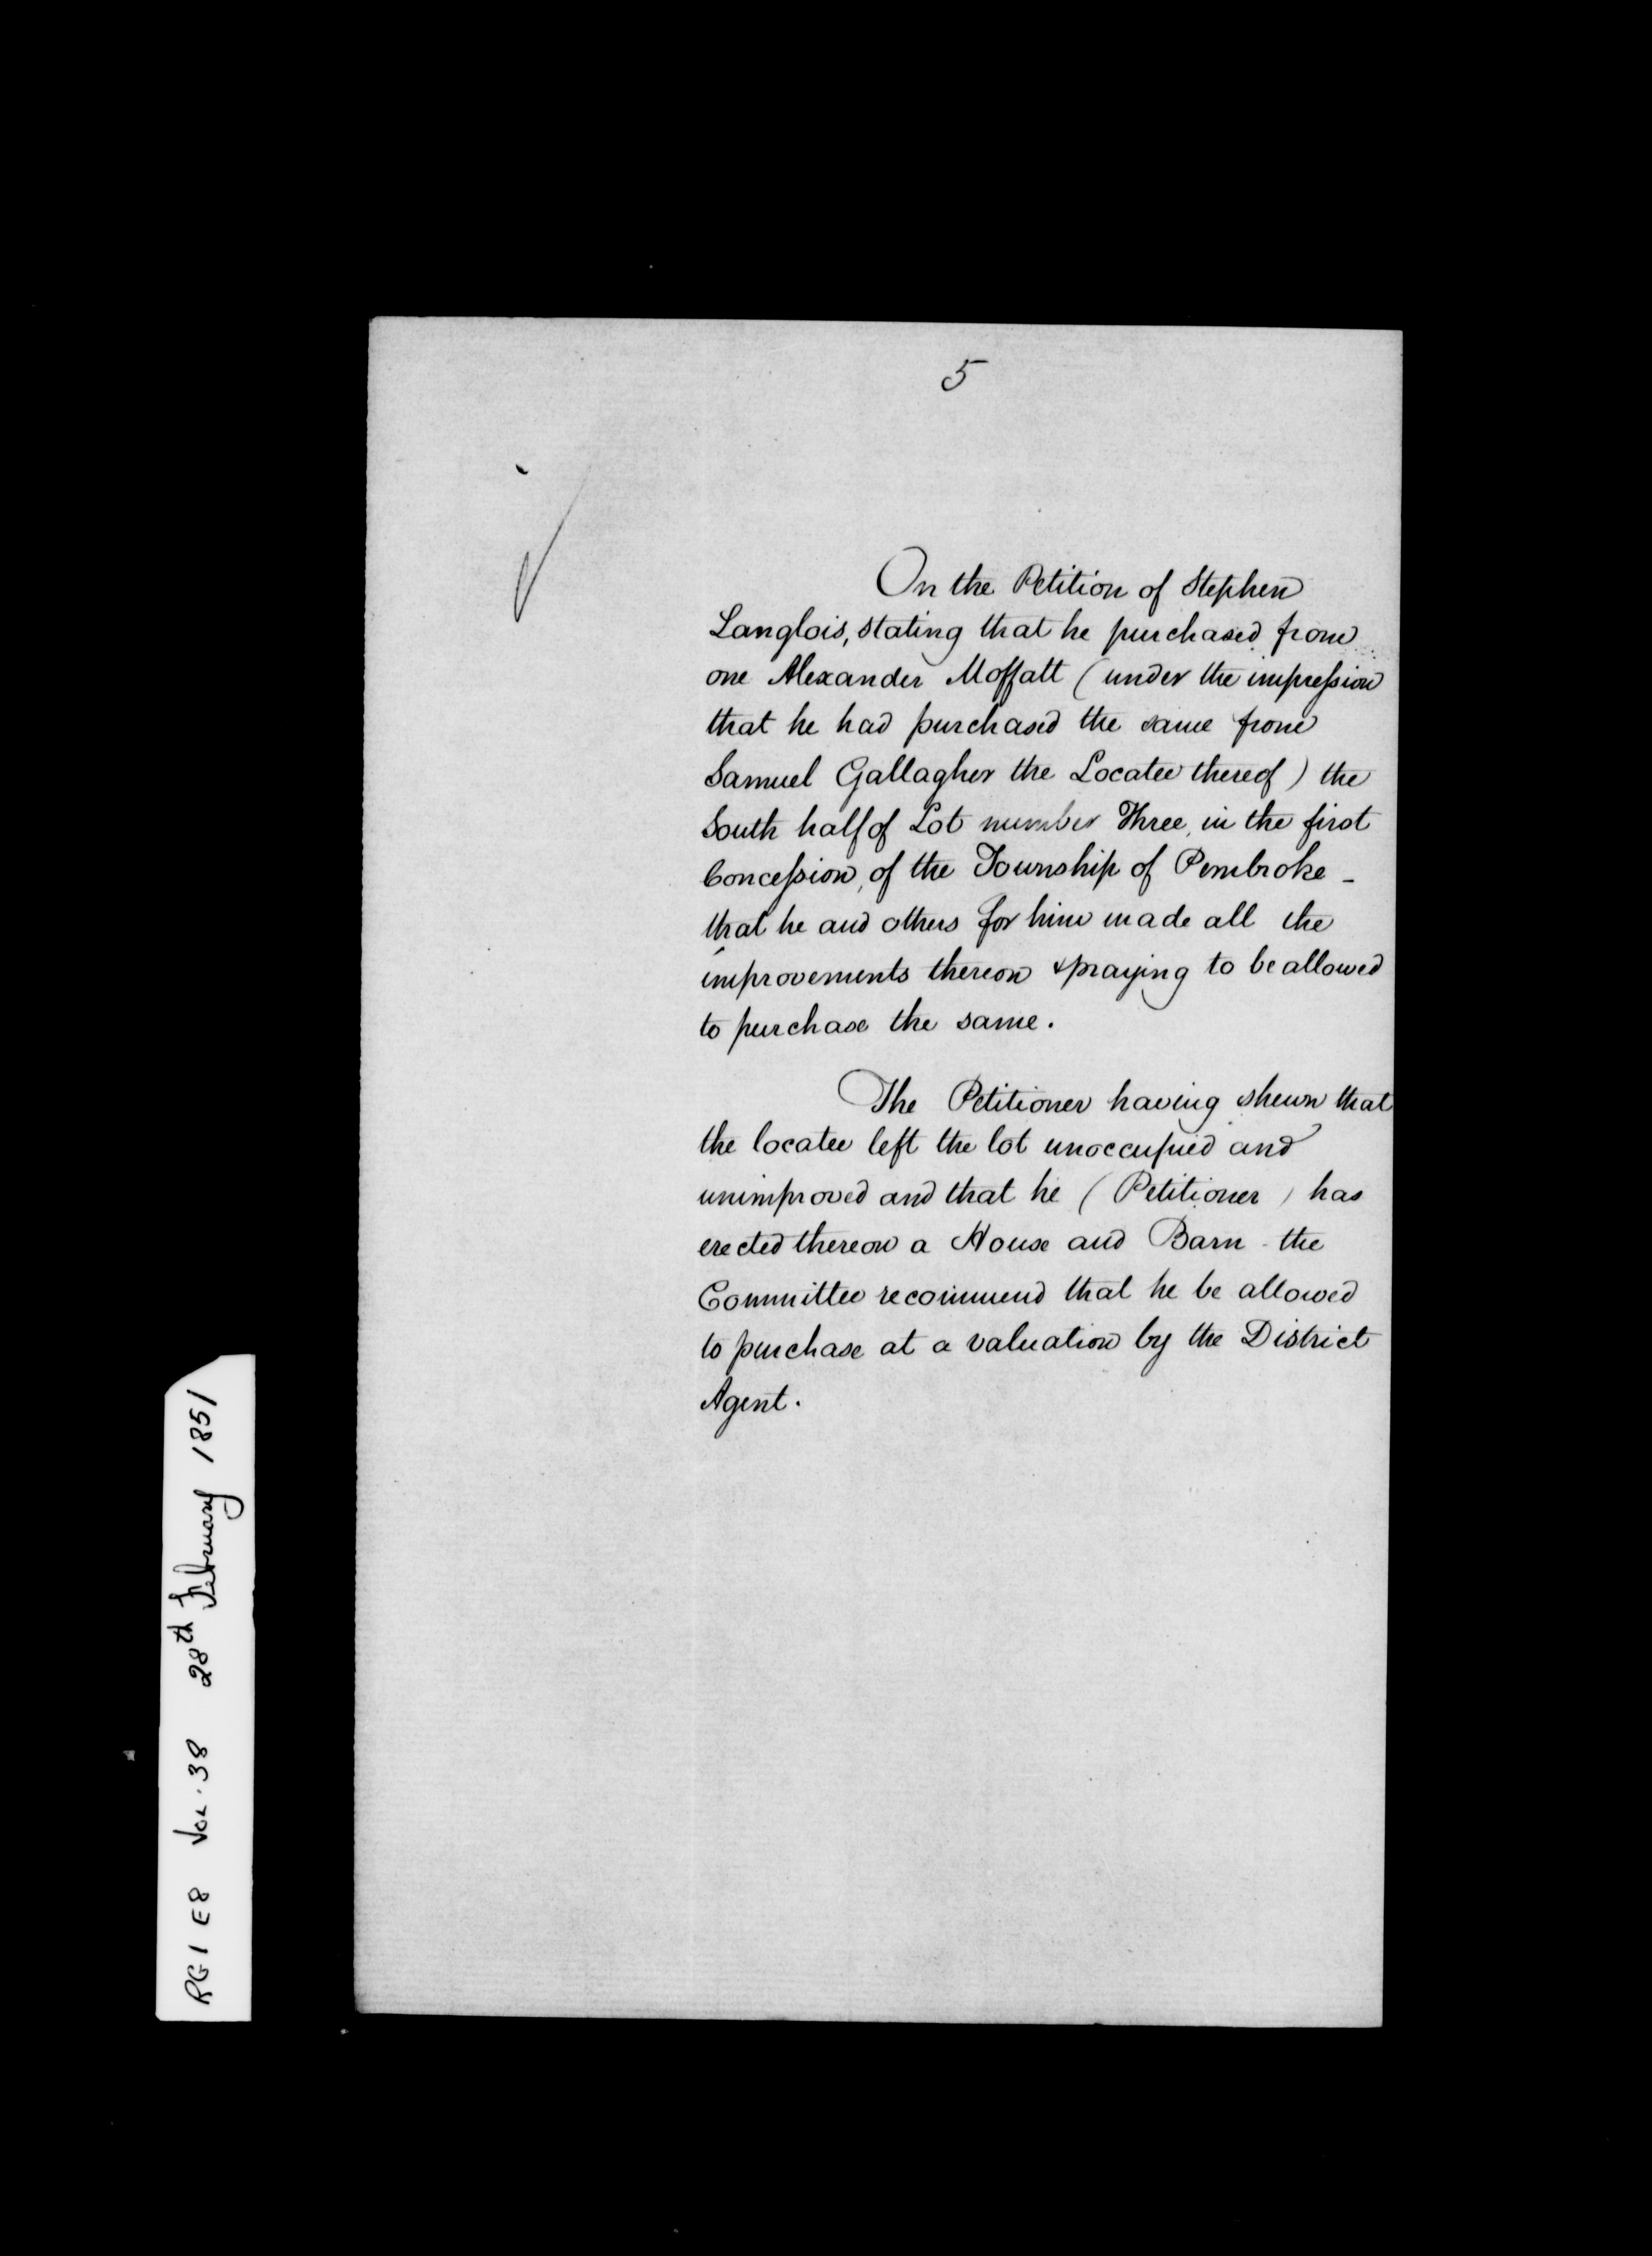 5
On the Petition of Stephen
Langlois, stating that he purchased from
one Alexander Moffatt (under the impression
that he had purchased the same from
Samuel Gallagher the Locatee thereof) the
South half of Lot number Three, in the first
Concession, of the Township of Pembroke -
that he and others for him made all the
improvements thereon & praying to be allowed
to purchase the same.
The Petitioner having shewn that
the locatee left the lot unoccupied and
unimproved and that he (Petitioner) has
erected thereon a House and Barn - the
Committee recommend that he be allowed
to purchase at a valuation by the District
Agent.
RG 1 E8 Vol. 38 28th February 1851